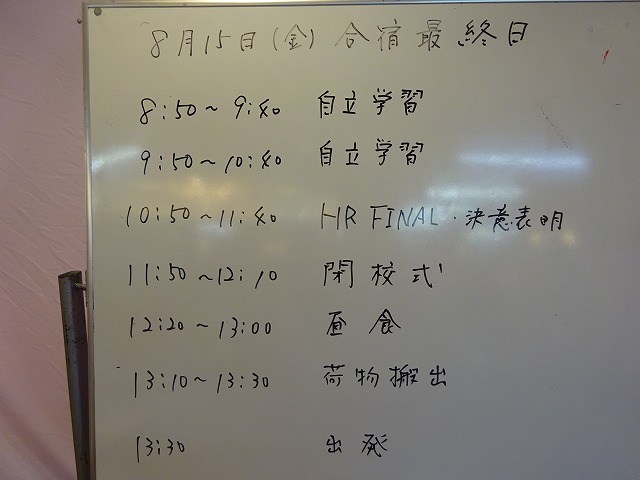 8月15日(金) 合宿最終日
8:50~9:40 自立学習
9:50~10:40 自立学習
10:50~11:40 HR FINAL・決意表明
11:50~12:10 閉校式
12:20~13:00 昼食
13:10~13:30 荷物搬出
13:30 出発